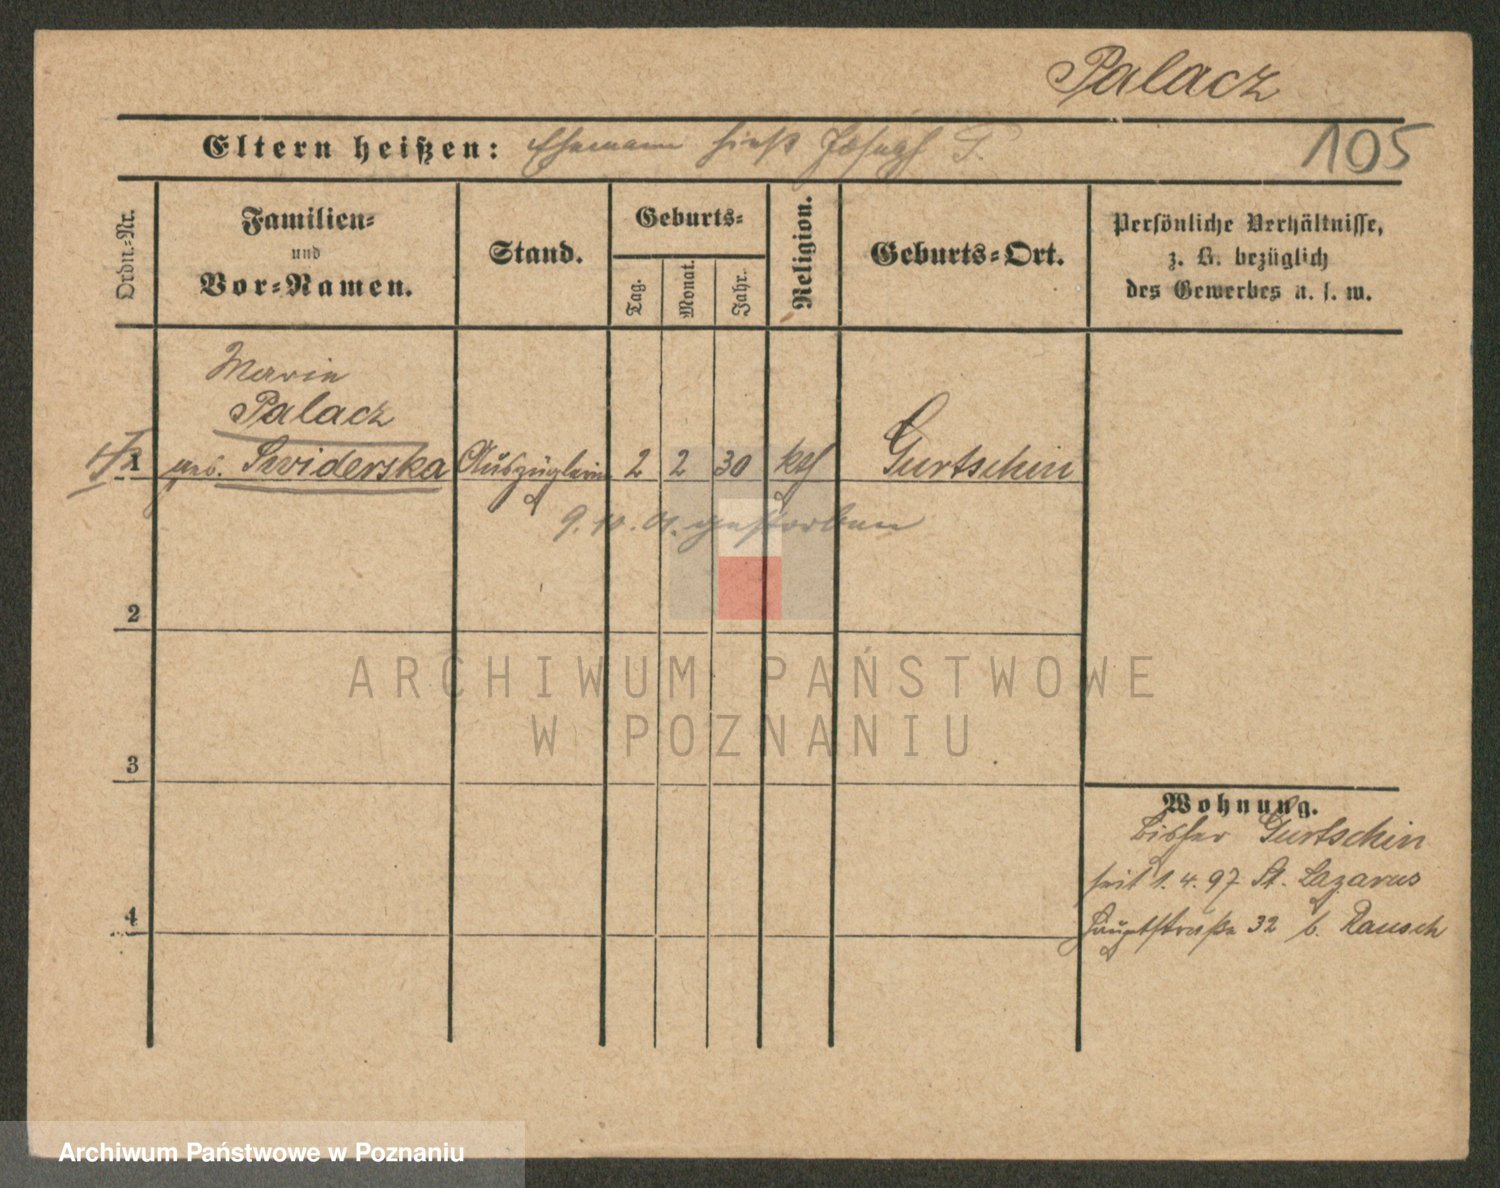 Palacz
Eltern heißen: Ehemann hieß Joseph P.
105
Ordn.-Nr.
Familien-
und
Vor-Namen.
Stand.
Geburts-
Tag.
Monat.
Jahr.
Religion.
Geburts-Ort.
Persönliche Verhältnisse,
z. B. bezüglich
des Gewerbes u. s. w.
Marie
Palacz
1 geb. Swiderska Auszüglerin 2 2 30 kth Gurtschin
9. 10. 01. gestorben
2
ARCHIWUM PAŃSTWOWE
W POZNANIU
3
Wohnung.
bisher Gurtschin
seit 1. 4. 97 St. Lazarus
Hauptstraße 32 b. Rausch
4
Archiwum Państwowe w Poznaniu